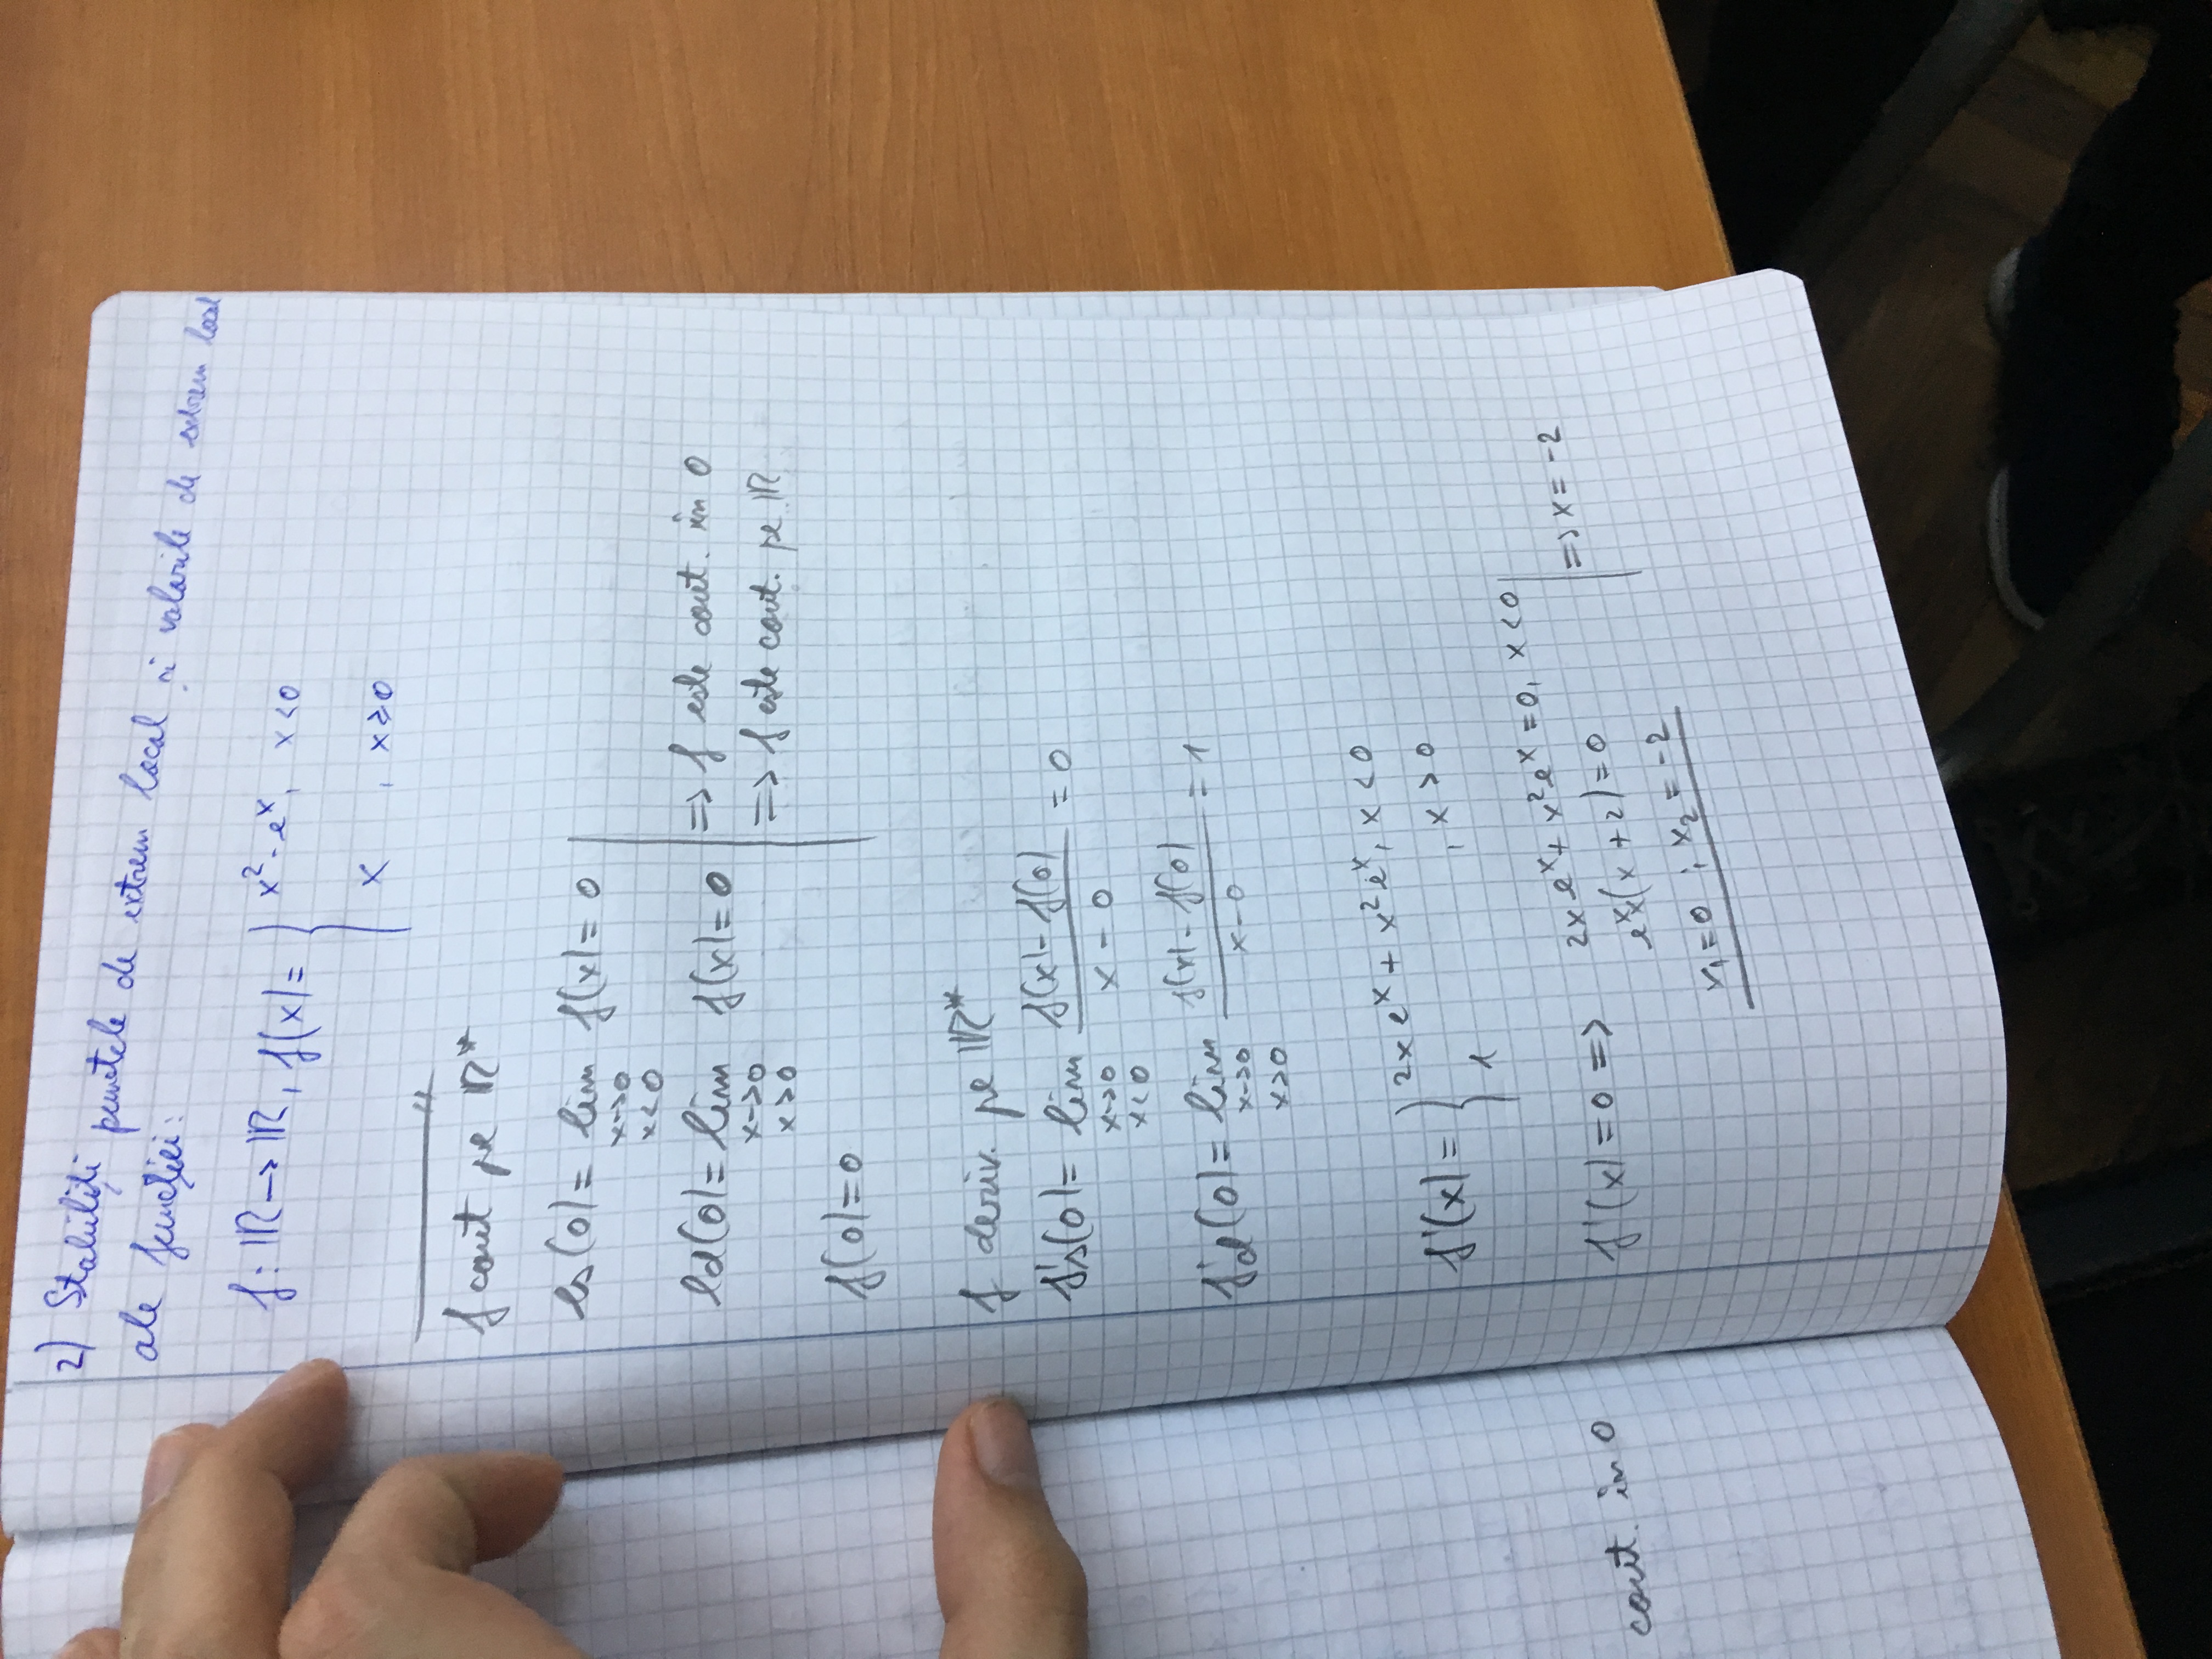 2) Stabiliți punctele de extrem local și valorile de extrem local
ale funcției:
f: ℝ → ℝ, f(x) = { x² · eˣ, x < 0
x , x ≥ 0
f cont pe ℝ*
ls(0) = lim f(x) = 0
x→0
x<0
ld(0) = lim f(x) = 0 => f este cont. în 0
x→0
x>0
=> f este cont. pe ℝ
f(0) = 0
f deriv. pe ℝ*
f's(0) = lim (f(x) - f(0))/(x - 0) = 0
x→0
x<0
f'd(0) = lim (f(x) - f(0))/(x - 0) = 1
x→0
x>0
f'(x) = { 2x eˣ + x² eˣ, x < 0
1 , x > 0
f'(x) = 0 => 2x eˣ + x² eˣ = 0, x < 0 | => x = -2
eˣx(x + 2) = 0
x₁ = 0 ; x₂ = -2
cont. în 0